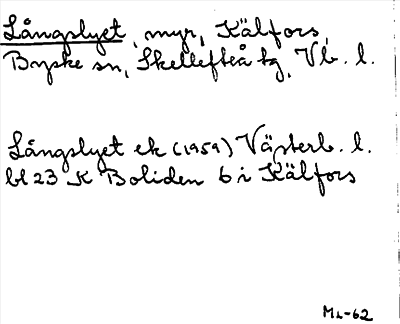 Långslyet, myr, Kälfors,
Byske sn, Skellefteå tg, Vb. l.
Långslyet ek (1959) Västerb. l.
bl 23 K Boliden 6 i Kälfors
ML-62